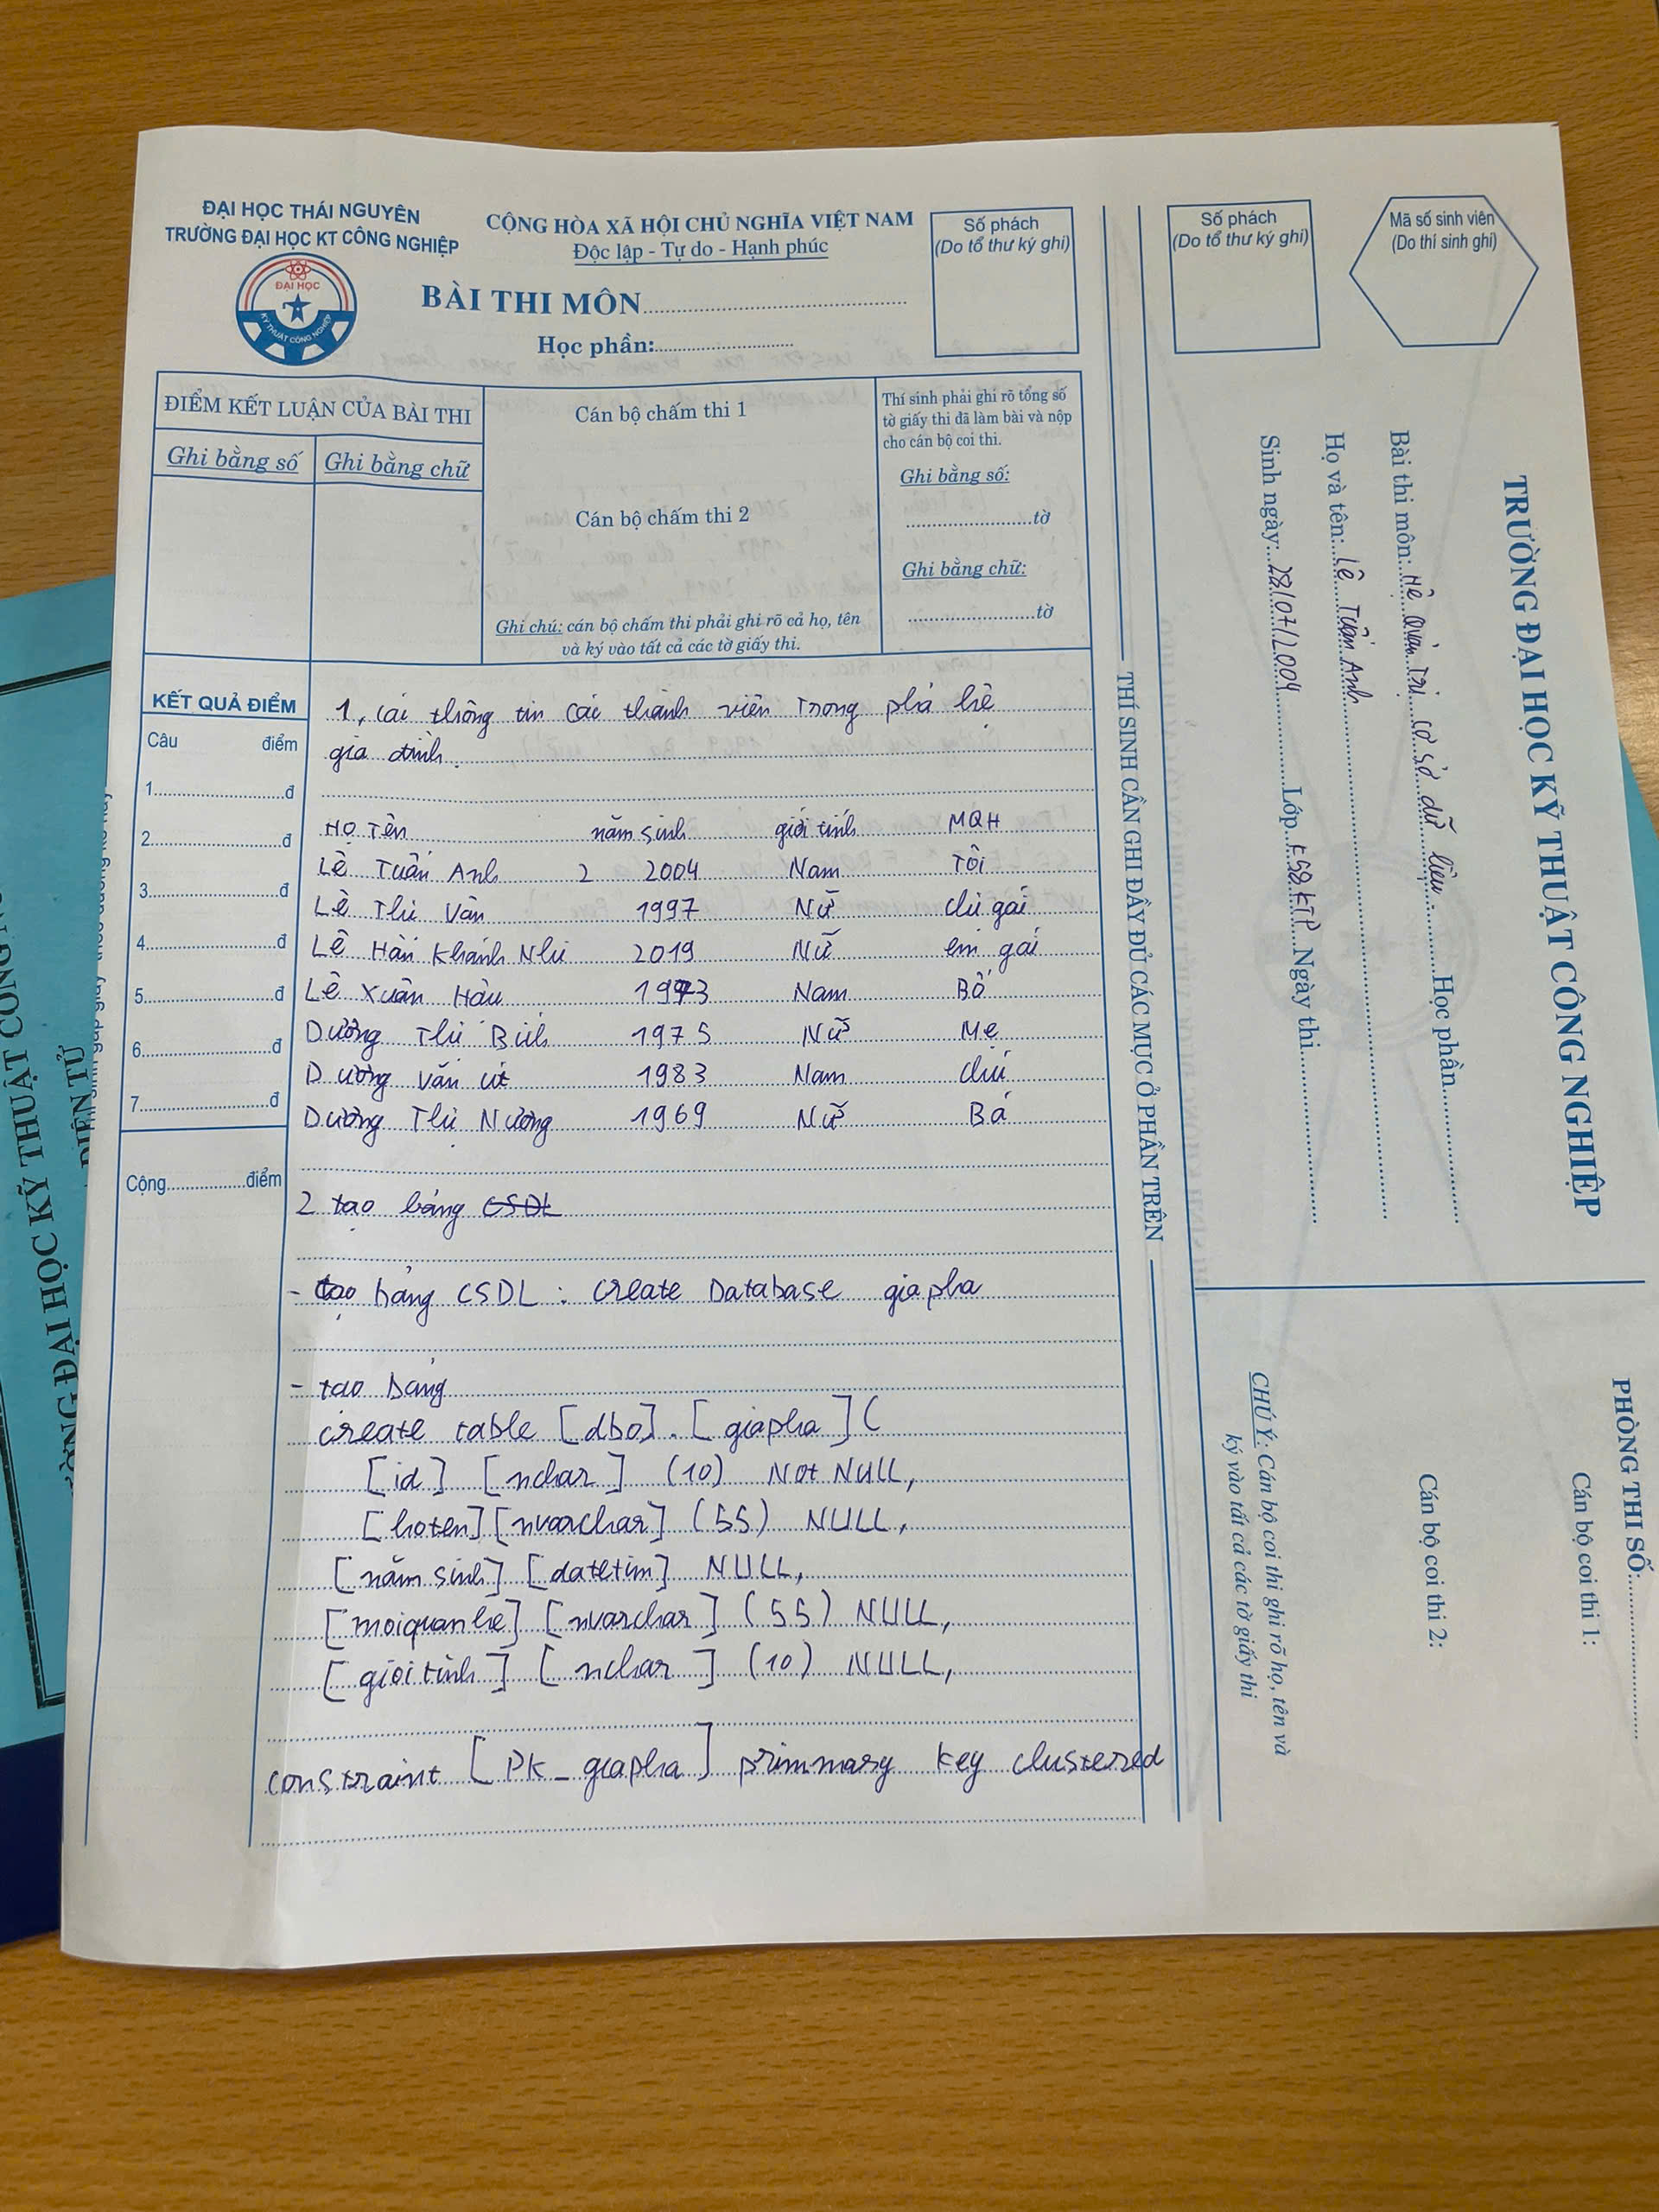 ĐẠI HỌC THÁI NGUYÊN
TRƯỜNG ĐẠI HỌC KT CÔNG NGHIỆP
ĐẠI HỌC
KỸ THUẬT CÔNG NGHIỆP
CỘNG HÒA XÃ HỘI CHỦ NGHĨA VIỆT NAM
Độc lập - Tự do - Hạnh phúc
BÀI THI MÔN
Học phần:
Số phách
(Do tổ thư ký ghi)
ĐIỂM KẾT LUẬN CỦA BÀI THI
Ghi bằng số Ghi bằng chữ
Cán bộ chấm thi 1
Cán bộ chấm thi 2
Ghi chú: cán bộ chấm thi phải ghi rõ cả họ, tên
và ký vào tất cả các tờ giấy thi.
Thí sinh phải ghi rõ tổng số
tờ giấy thi đã làm bài và nộp
cho cán bộ coi thi.
Ghi bằng số:
tờ
Ghi bằng chữ:
tờ
KẾT QUẢ ĐIỂM
Câu điểm
1 đ
2 đ
3 đ
4 đ
5 đ
6 đ
7 đ
Cộng điểm
1, cái thông tin các thành viên Trong phả hệ
gia đình.
Họ Tên năm sinh giới tính MQH
Lê Tuấn Anh 2 2004 Nam Tôi
Lê Thị Vân 1997 Nữ chị gái
Lê Hàn Khánh Nhi 2019 Nữ em gái
Lê Xuân Hậu 1973 Nam Bố
Dương Thị 1975 Nữ Mẹ
Dương Văn út 1983 Nam chú
Dương Thị Nương 1969 Nữ Bá
2 tạo bảng CSDL
- tạo bảng CSDL : Create Database giapha
- tạo bảng
create table [dbo]. [giapha] (
[id] [nchar] (10) Not NULL,
[hoten] [nvarchar] (55) NULL,
[năm sinh] [datetim] NULL,
[moiquanhe] [nvarchar] (55) NULL,
[gioi tinh] [nchar] (10) NULL,
constraint [PK_giapha] primmary key clustered
THÍ SINH CẦN GHI ĐẦY ĐỦ CÁC MỤC Ở PHẦN TRÊN
Số phách
(Do tổ thư ký ghi)
Mã số sinh viên
(Do thí sinh ghi)
TRƯỜNG ĐẠI HỌC KỸ THUẬT CÔNG NGHIỆP
Bài thi môn: Hệ Quản Trị cơ sở dữ liệu. Học phần
Họ và tên: Lê Tuấn Anh
Sinh ngày: 28/07/2004 Lớp Ngày thi
PHÒNG THI SỐ:
Cán bộ coi thi 1:
Cán bộ coi thi 2:
CHÚ Ý: Cán bộ coi thi ghi rõ họ, tên và
ký vào tất cả các tờ giấy thi
ĐẠI HỌC KỸ THUẬT CÔNG
ĐIỆN TỬ